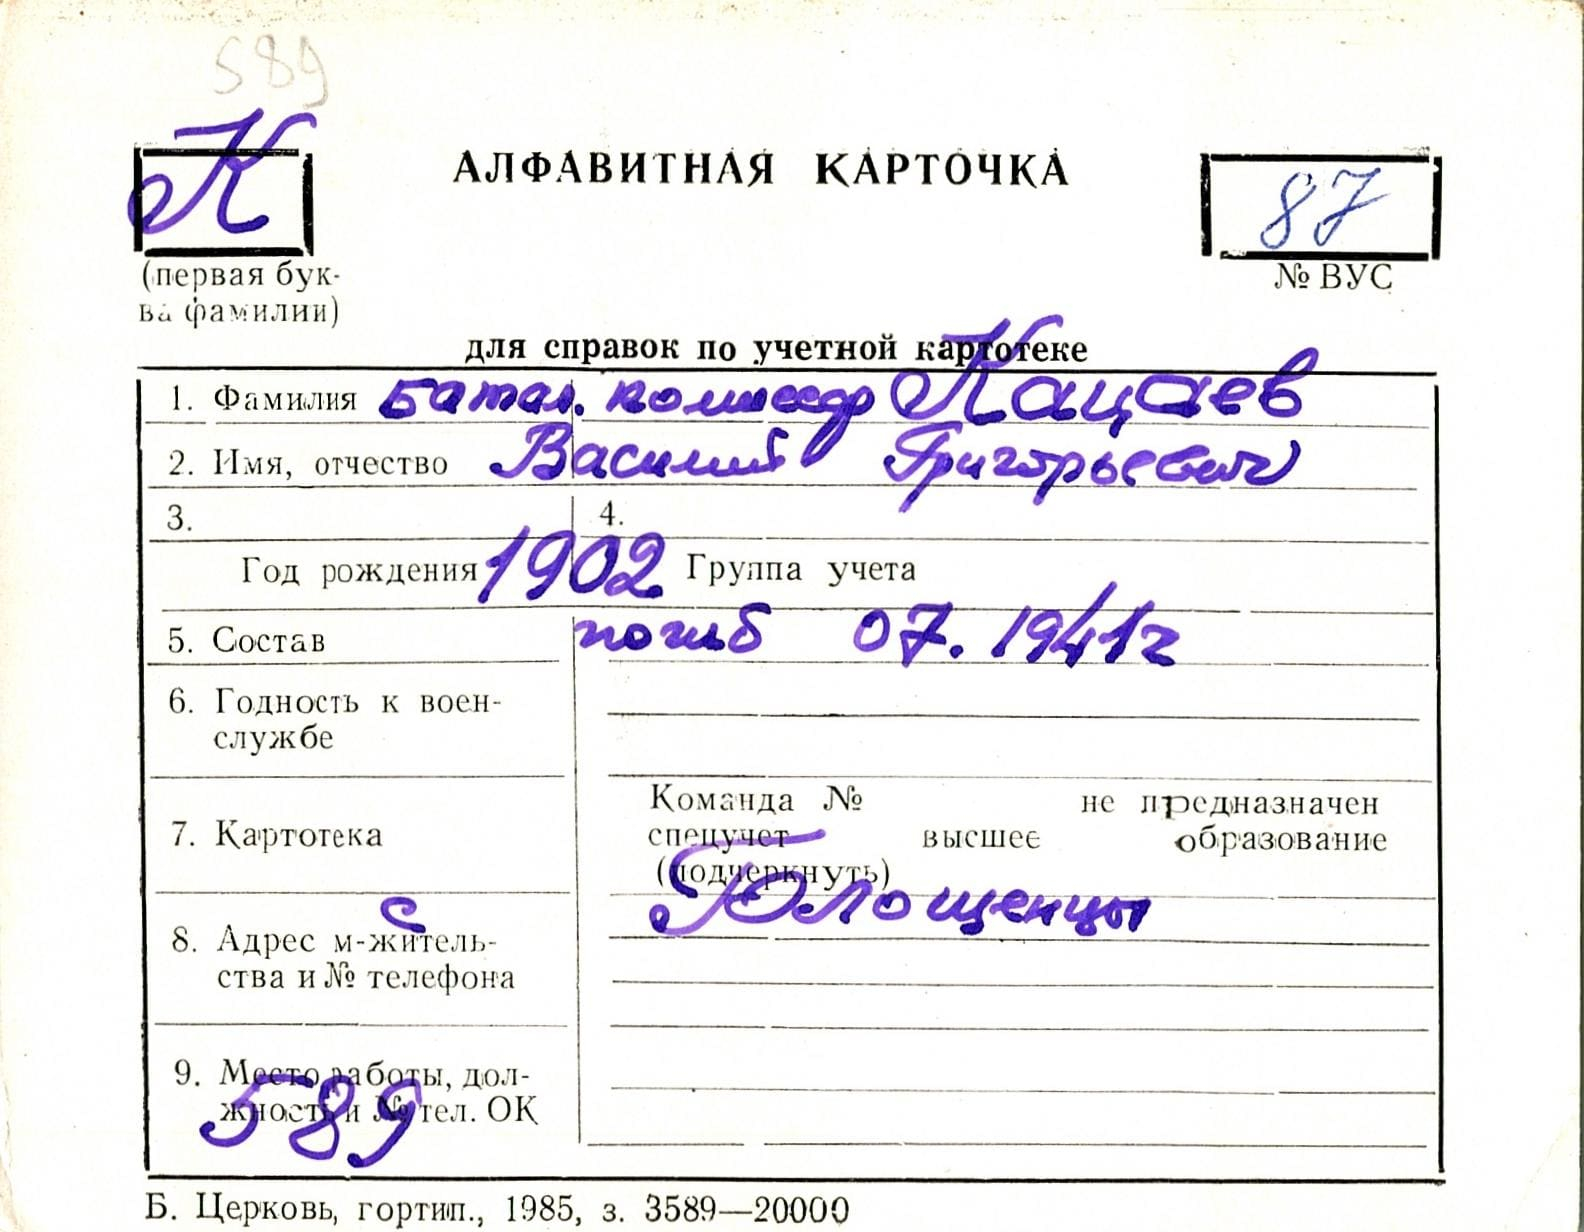 589
К
АЛФАВИТНАЯ КАРТОЧКА
87
(первая бук-
ва фамилии)
№ ВУС
для справок по учетной картотеке
1. Фамилия Батал. комиссар Кацаев
2. Имя, отчество Василий Григорьевич
3. 4.
Год рождения 1902 Группа учета
5. Состав погиб 07. 1941 г
6. Годность к воен-
службе
7. Картотека
Команда № не предназначен
спецучет высшее образование
(подчеркнуть)
8. Адрес м-жительс-
ства и № телефона
с Юлощенцы
9. Место работы, дол-
жность и № тел. ОК
589
Б. Церковь, гортип., 1985, з. 3589—20000